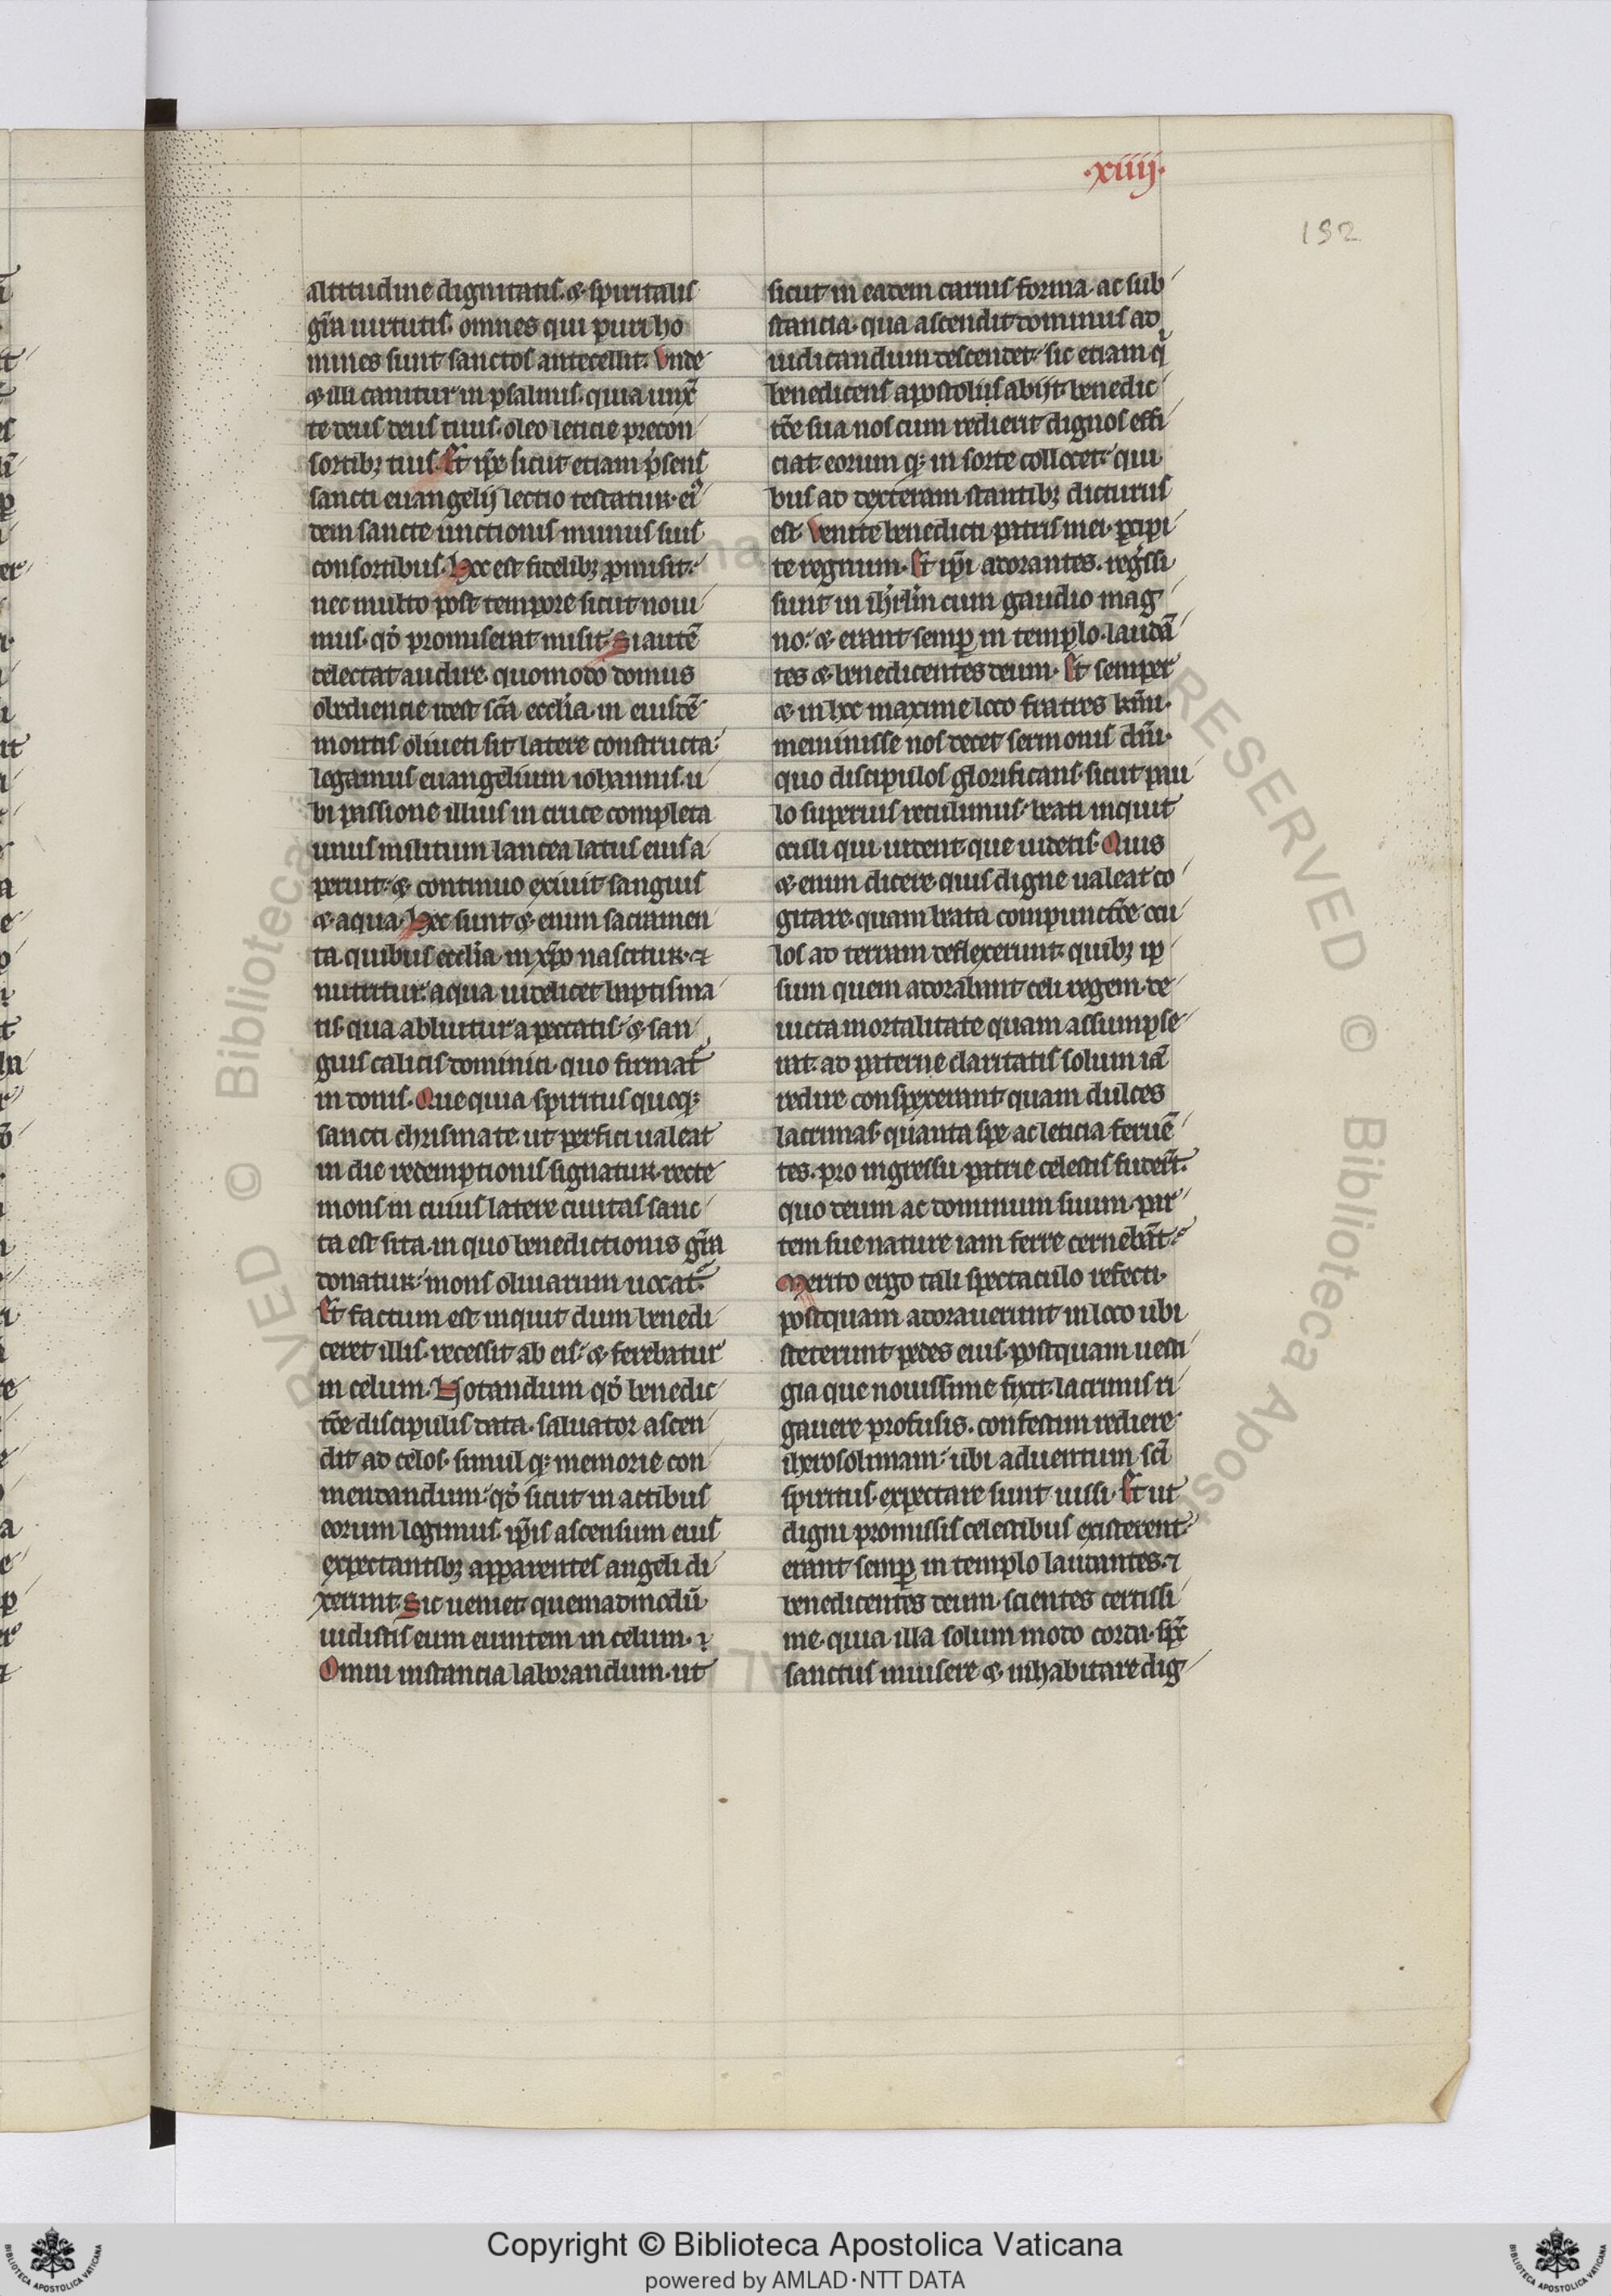 ·xiiij·
192
altitudine dignitatis. & spiritalis
gr̄a uirtutis. omnes qui puri ho
mines sunt sanctos antecellit. Vnde
& illi canitur in psalmis. quia unx̄
te deus deus tuus. oleo leticie precon
sortibꝫ tuis. Et ip̄e sicut etiam p̄sens
sancti euangelij lectio testatur. ei᷒
dem sancte unctionis munus suis
consortibus. Hec est fidelibꝫ ꝓmisit.
nec multo post tempore sicut noui
mus. qđ promiserat misit. Si autē
delectat audire. quomodo domus
obediencie idest sc̄a eccl̄ia. in eiusdē
montis oliueti sit latere constructa.
legamus euangelium iohannis. u
bi passione illius in cruce completa
unus militum lancea latus eius a
peruit. & continuo exiuit sanguis
& aqua. Hec sunt & enim sacramen
ta. quibus eccl̄ia. in xp̄o nascitur. ⁊
nutritur. aqua uidelicet baptisma
tis. qua abluitur a peccatis. & san
guis calicis dominici. quo firmat᷑
in donis. Que quia spiritus quoqꝫ
sancti chrismate. ut perfici ualeat
in die redemptionis signatur. recte
mons in cuius latere ciuitas sanc
ta est sita. in quo benedictionis gr̄a
donatur. mons oliuarum uocat᷑.
Et factum est inquit dum benedi
ceret illis. recessit ab eis. & ferebatur
in celum. Notandum qđ benedic
tōe discipulis data. saluator ascen
dit ad celos. simul qꝫ memorie con
mendandum. qđ sicut in actibus
eorum legimus. ip̄is ascensum eius
expectantibꝫ apparentes angeli di
xerunt. Sic ueniet quemadmodū
uidistis eum euntem in celum. ⁊
Omni instancia laborandum. ut
sicut in eadem carnis forma. ac sub
stancia. qua ascendit dominus ad
iudicandum descendet. sic etiam qͥ
benedicens apostolis abijt. benedic
tōe sua nos cum redierit dignos effi
ciat. eorum qꝫ in sorte collocet. qui
bus ad dexteram stantibꝫ dicturus
est. Venite benedicti patris mei. ꝑcipi
te regnum. Et ip̄i adorantes. regͥssi
sunt in ih̄rlm̄ cum gaudio mag
no. & erant semꝑ in templo. laudā
tes & benedicentes deum. Et semper
& in hoc maxime loco fratres kmi.
meminisse nos decet sermonis dn̄i.
quo discipulos glorificans. sicut pau
lo superius retulimus. beati inquit
oculi qui uident que uidetis. Quis
& enim dicere. quis digne ualeat co
gitare. quam beata compunctōe ocu
los ad terram deflexerunt. quibꝫ ip
sum quem adorabant celi regem. de
uicta mortalitate quam assumpse
rat. ad paterne claritatis solum iā
redire conspexerant. quam dulces
lacrimas. quanta spe ac leticia feruē
tes. pro ingressu patrie celestis fuderīt.
quo deum ac dominum suum. par
tem sue nature iam ferre cernebāt.
Merito ergo tali spectaculo refecti.
postquam adorauerunt in loco ubi
steterunt pedes eius. postquam uesti
gia que nouissime fixit. lacrimis ri
gauere profusis. confestim rediere
iherosolimam. ubi aduentum sc̄i
spiritus expectare sunt iussi. Et ut
digni promissis celestibus existerent.
erant semꝑ in templo laudantes. ⁊
benedicentes deum. scientes certissi
me. quia illa solum modo corda. sp̄c
sanctus inuisere & inhabitare dig
Copyright © Biblioteca Apostolica Vaticana
powered by AMLAD·NTT DATA